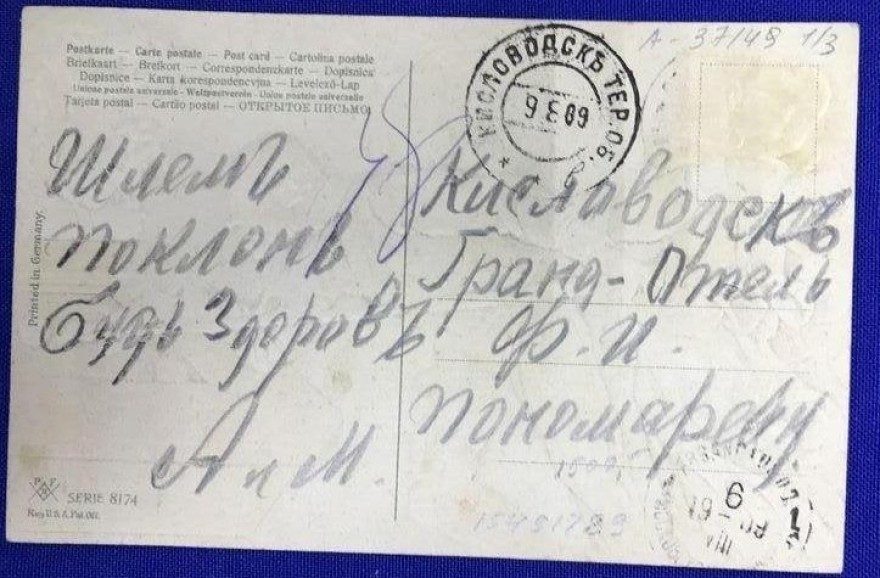 A-37149 1/3
Postkarte — Carte postale — Post card — Cartolina postale
Briefkaart — Brefkort — Correspondenzkarte — Dopisnica
Dopisnice — Karta korespondencyjna — Levelező-Lap
Unione postale universale - Weltpostverein - Union postale universelle
Tarjeta postal — Cartão postal — ОТКРЫТОЕ ПИСЬМО
КИСЛОВОДСКЪ ТЕР.ОБ.
9 8 09
Шлемъ
поклонъ
Будь Здоровъ
А и М.
Киславодскъ
Гранд-Отель
Ф. И.
Пономареву
Printed in Germany.
SERIE 8174
15451789
9